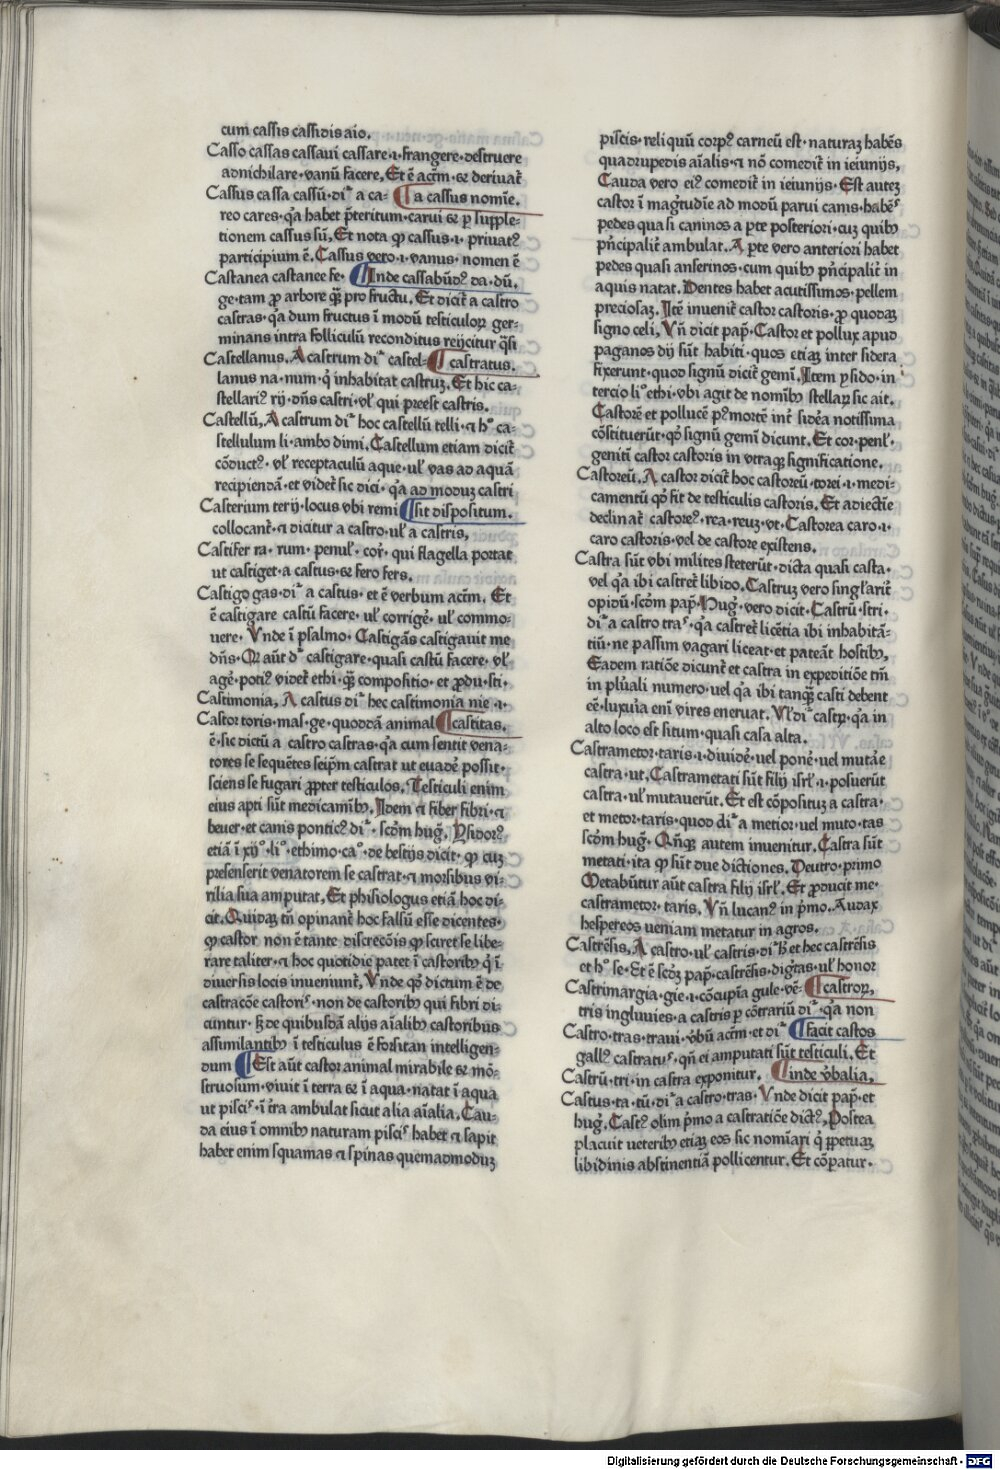 cum cassis cassidis aio.
Casso cassas cassaui cassare ·i· frangere · destruere
adnichilare · vanū facere, Et ē actm̄ · ⁊ deriuat᷑
Cassus cassa cassū · di᷑ a ca- ¶ a cassus nomīe.
reo cares · q̄a habet p̄teritum · carui ⁊ p supple-
tionem cassus sū, Et nota ꝙ cassus ·i· priuatꝰ
participium ē. Cassus vero ·i· vanus · nomen ē
Castanea castanee fe · ¶ Inde cassabūdꝰ da · dū.
ge · tam ꝓ arbore qꝫ pro fructu, Et dicit᷑ a castro
castras · q̄a dum fructus ī modū testiculoꝝ ger-
minans intra folliculū reconditus reijcitur q̄si
Castellanus. A castrum di᷑ castel- ¶ castratus.
lanus na · num · q̄ inhabitat castruꝫ. Et hic ca-
stellariꝰ rij · dn̄s castri · vl᷑ qui preest castris.
Castellū, A castrum di᷑ hoc castellū telli · ⁊ hº ca-
stellulum li · ambo dimi. Castellum etiam dicit᷑
cōductꝰ · vl᷑ receptaculū aque · ul᷑ vas ad aquā
recipiendā · et videt᷑ sic dici · q̄a ad moduꝫ castri
Casterium terij · locus vbi remi ¶ sit dispositum.
collocant᷑ · ⁊ dicitur a castro · ul᷑ a castris,
Castifer ra · rum · penul᷑ · cor᷑ · qui flagella portat
ut castiget · a castus · ⁊ fero fers.
Castigo gas · di᷑ a castus · et ē verbum actm̄. Et
ē castigare castū facere · ul᷑ corrige᷑ · ul᷑ commo-
uere · Vnde ī psalmo · Castigās castigauit me
dn̄s · Qꝛ aūt d᷑ castigare · quasi castū facere · vl᷑
age᷑ · potiꝰ videt᷑ ethi · qꝫ compositio · et ꝓdu · sti ·
Castimonia, A castus di᷑ hec castimonia nie ·i·
Castor toris · mas · ge · quoddā animal ¶ castitas.
ē · sic dictū a castro castras · q̄a cum sentit vena-
tores se sequētes seipm̄ castrat ut euade᷑ possit ·
sciens se fugari ꝓpter testiculos, Testiculi enim
eius apti sūt medicamībꝫ. Idem ⁊ fiber fibri · ⁊
beuer · et canis ponticꝰ di᷑ · scd̄m hug̃. Ysidorꝰ
etiā ī xijº · liº · ethimo · caº · de bestijs dicit · ꝙ cuꝫ
presenserit venatorem se castrat · ⁊ morsibus vi-
rilia sua amputat, Et phisiologus etiā hoc di-
cit. Quidaꝫ tn̄ opinant᷑ hoc falsū esse dicentes ·
ꝙ castor non ē tante discrecōis ꝙ sciret se libe-
rare taliter · ⁊ hoc quotidie patet ī castoribꝫ q̄ ī
diuersis locis inueniunt᷑, Vnde qd̄ dictum ē de
castracōe castoriſ · non de castoribꝫ qui fibri di-
cuntur · sꝫ de quibusdā alijs aīalibꝫ castoribus
assimilantibꝫ ī testiculus ē forsitan intelligen-
dum ¶ Est aūt castor animal mirabile ⁊ mō-
struosum · viuit ī terra ⁊ ī aqua · natat ī aqua
ut pisciſ · ī t᷑ra ambulat sicut alia aīalia. Cau-
da eius ī omnibꝫ naturam pisciſ habet ⁊ sapit
habet enim squamas ⁊ spinas quemadmoduꝫ
piscis · reliquū corpꝰ carneū est · naturaꝫ habēs
quadrupedis aīalis · ⁊ nō comedit᷑ in ieiunijs,
Cauda vero eiꝰ comedit᷑ in ieiunijs · Est auteꝫ
castor ī magͥtudīe ad modū parui canis · habēſ
pedes quasi caninos a pte posteriori · cuꝫ quibꝫ
pn̄cipalit᷑ ambulat. A pte vero anteriori habet
pedes quasi anserinos · cum quibꝫ pn̄cipalit᷑ in
aquis natat. Dentes habet acutissimos · pellem
preciosaꝫ. Itē inuenit᷑ castor castoris · ꝓ quodaꝫ
signo celi, Vn̄ dicit pap̄ · Castor et pollux apud
paganos dij sūt habiti · quos etiaꝫ inter sidera
fixerunt · quod signū dicit᷑ gemī. Item ysido · in
tercio liº ethi · vbi agit de nomībꝫ stellaꝝ sic ait.
Castorē et pollucē pꝰ mortē int᷑ sidea notissima
cōstituerūt · qd̄ signū gemī dicunt. Et cor · penl᷑ ·
geniti castor castoris in vtraqꝫ significatione.
Castoreū. A castor dicit᷑ hoc castoreū · torei ·i· medi-
camentū qd̄ fit de testiculis castoris. Et adiectīe
declinat᷑ castoreꝰ · rea · reuꝫ · vt · Castorea caro ·i·
caro castoris · vel de castore existens.
Castra sūt vbi milites steterūt · dicta quasi casta ·
vel q̄a ibi castret᷑ libido. Castruꝫ vero singl᷑arit᷑
opidū · scd̄m pap̄ · Hug̃ · vero dicit · Castrū · stri ·
di᷑ a castro traſ · q̄a castret᷑ licētia ibi inhabitā-
tiū · ne passim vagari liceat · et pateāt hostibꝫ,
Eadem ratiōe dicunt᷑ et castra in expeditiōe tm̄
in pl᷑ali numero · uel q̄a ibi tanqꝫ casti debent
eē · luxuria eni᷑ vires eneruat. Vl᷑ di᷑ castꝝ · q̄a in
alto loco est situm · quasi casa alta.
Castrametor · taris ·i· diuide᷑ · uel pone᷑ · vel mutare
castra · ut, Castrametati sūt filij isrl᷑ ·i· posuerūt
castra · ul᷑ mutauerūt. Et est cōposituꝫ a castra ·
et metor · taris · quod di᷑ a metior · uel muto · tas
scd̄m hug̃ · Qn̄qꝫ autem inuenitur. Castra sūt
metati · ita ꝙ sūt due dictiones. Deutro · primo
Metabūtur aūt castra filij isrl᷑. Et ꝓducit me ·
castrametor · taris. Vn̄ lucanꝰ in p̄mo. Audax
hespereos ueniam metatur in agros.
Castrēsis, A castro · ul᷑ castris · di᷑ h̄ et hec castrēsis
et hº se · Et ē scd̄ꝫ pap̄ · castrēsis · dig̃tas · ul᷑ honor
Castrimargia · gie ·i· cōcupīa gule · vē- ¶ castroꝝ,
tris ingluuies · a castris p cōtrariū di᷑ · q̄a non
Castro · tras · traui · v̄bū actm̄ · et di᷑ ¶ facit castos
gallꝰ castratuſ · qn̄ ei amputati sūt testiculi. Et
Castrū · tri · in castra exponitur. ¶ inde v̄balia,
Castus · ta · tū · di᷑ a castro · tras · Vnde dicit pap̄ · et
hug̃. Castꝰ olim p̄mo a castratiōe dictꝰ, Postea
placuit ueteribꝫ etiaꝫ eos sic nomīari q̄ ꝑpetuaꝫ
libidinis abstinentiā pollicentur. Et cōpatur ·
Digitalisierung gefördert durch die Deutsche Forschungsgemeinschaft - DFG